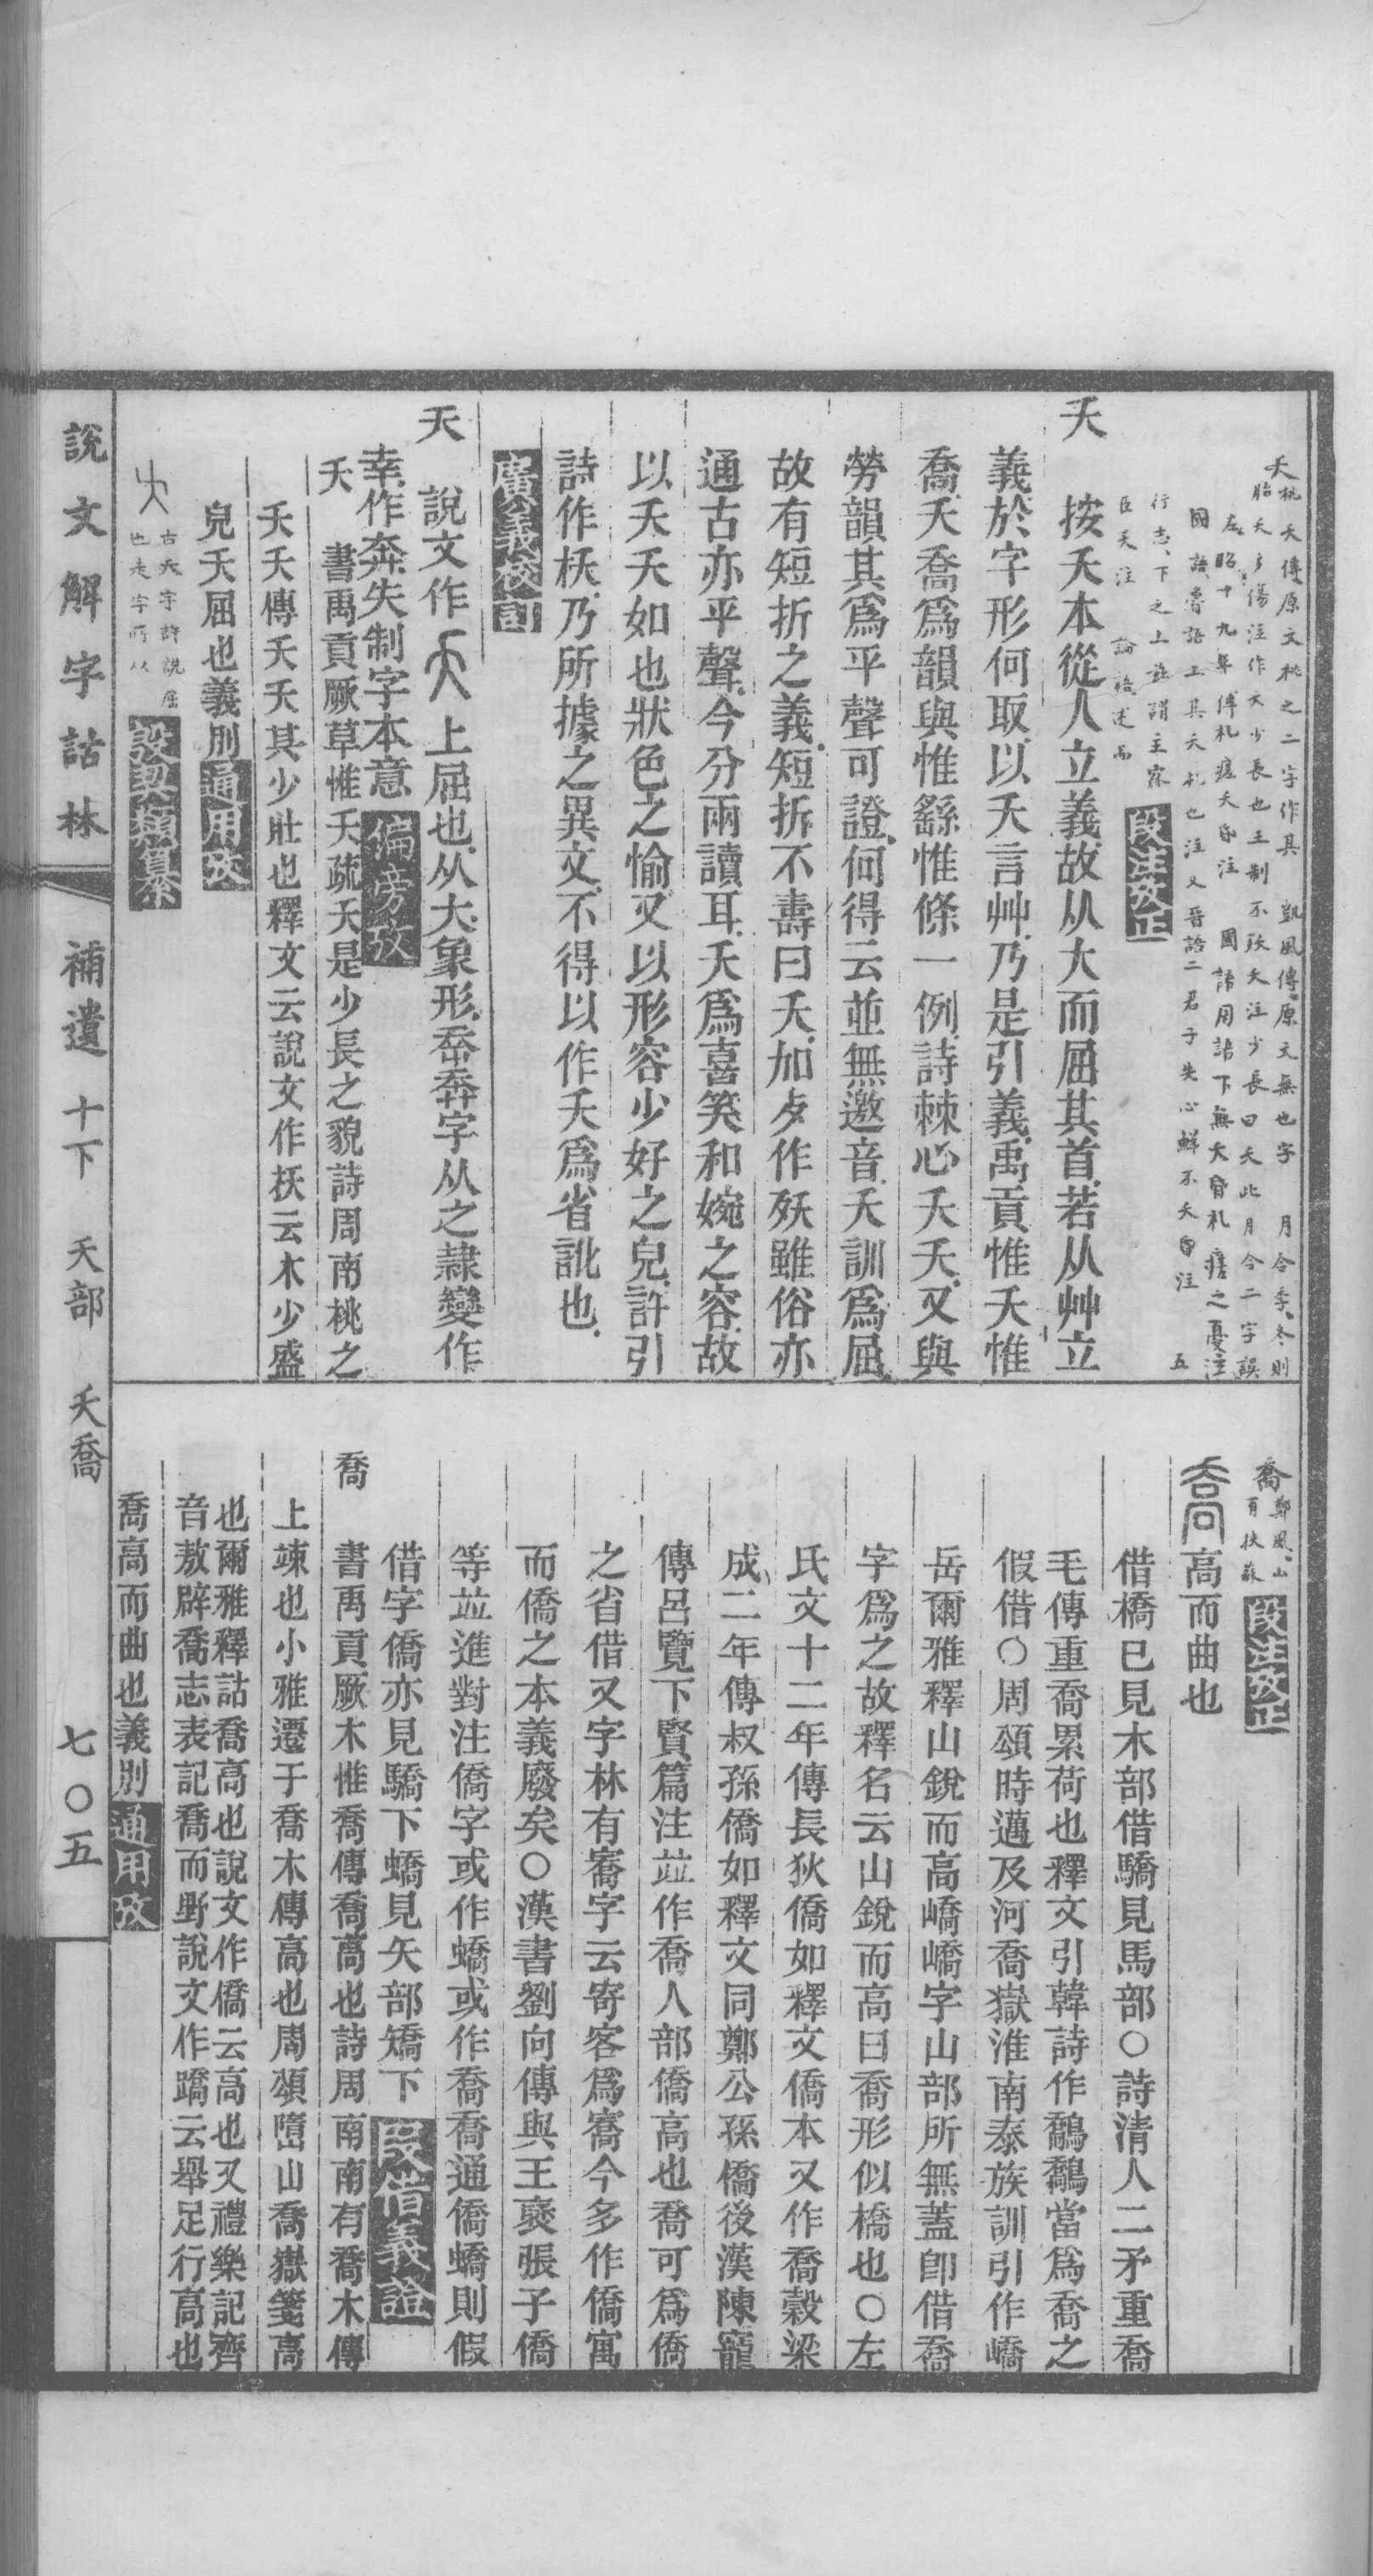 夭桃夭傳原文桃之二字作其 凱風傳原文無也字 月令季冬則
胎夭多傷注作夭少長也王制不殀夭注少長曰夭此月令二字誤
左昭十九年傳札瘥夭昏注 國語周語下無夭昏札瘥之憂注
國語魯語上其夭札也注又晉語二君子失心鮮不夭昏注 五
行志下之上
臣夭注 論語述而
段注攷正
夭
按夭本從人立義故从大而屈其首若从艸立
義於字形何取以夭言艸乃是引義禹貢惟夭惟
喬夭喬爲韻與惟繇惟條一例詩棘心夭夭又與
勞韻其爲平聲可證何得云並無邀音夭訓爲屈
故有短折之義短折不壽曰夭加歺作殀雖俗亦
通古亦平聲今分兩讀耳夭爲喜笑和婉之容故
以夭夭如也狀色之愉又以形容少好之皃許引
詩作枖乃所據之異文不得以作夭爲省訛也
夭 說文作上屈也从大象形喬奔字从之隸變作
幸作奔失制字本意偏旁攷
夭 書禹貢厥草惟夭疏夭是少長之貌詩周南桃之
夭夭傳夭夭其少壯也釋文云說文作枖云木少盛
皃夭屈也義別通用攷
古夭字許說屈
也走字所从
殷契類纂
喬鄭風山
有扶蘇
段注攷正
高而曲也
借橋已見木部借驕見馬部○詩清人二矛重喬
毛傳重喬累荷也釋文引韓詩作鷮鷮當爲喬之
假借○周頌時邁及河喬嶽淮南泰族訓引作嶠
岳爾雅釋山銳而高嶠嶠字山部所無蓋卽借喬
字爲之故釋名云山銳而高曰喬形似橋也○左
氏文十二年傳長狄僑如釋文僑本又作喬穀梁
成二年傳叔孫僑如釋文同鄭公孫僑後漢陳寵
傳呂覽下賢篇注竝作喬人部僑高也喬可爲僑
之省借又字林有寯字云寄客爲寯今多作僑寓
而僑之本義廢矣○漢書劉向傳與王褒張子僑
等竝進對注僑字或作蟜或作喬喬通僑蟜則假
借字僑亦見驕下蟜見矢部矯下段借義證
喬 書禹貢厥木惟喬傳喬高也詩周南南有喬木傳
上竦也小雅遷于喬木傳高也周頌墮山喬嶽箋高
也爾雅釋詁喬高也說文作僑云高也又禮樂記齊
音敖辟喬志表記喬而野說文作蹻云舉足行高也
喬高而曲也義別通用攷
說文解字詁林 補遺 十下 夭部 夭喬 七○五